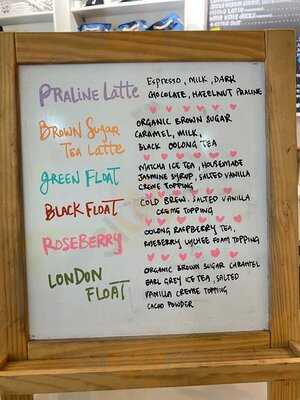 PRALINE LATTE
ESPRESSO, MILK, DARK
CHOCOLATE, HAZELNUT PRALINE
BROWN SUGAR
TEA LATTE
ORGANIC BROWN SUGAR
CARAMEL, MILK,
BLACK OOLONG TEA
GREEN FLOAT
MATCHA ICE TEA, HOUSEMADE
JASMINE SYRUP, SALTED VANILLA
CREME TOPPING
BLACK FLOAT
COLD BREW, SALTED VANILLA
CREME TOPPING
ROSEBERRY
OOLONG RASPBERRY TEA,
ROSEBERRY, LYCHEE FOAM TOPPING
LONDON
FLOAT
ORGANIC BROWN SUGAR CARAMEL
EARL GREY ICE TEA, SALTED
VANILLA CREME TOPPING
CACAO POWDER